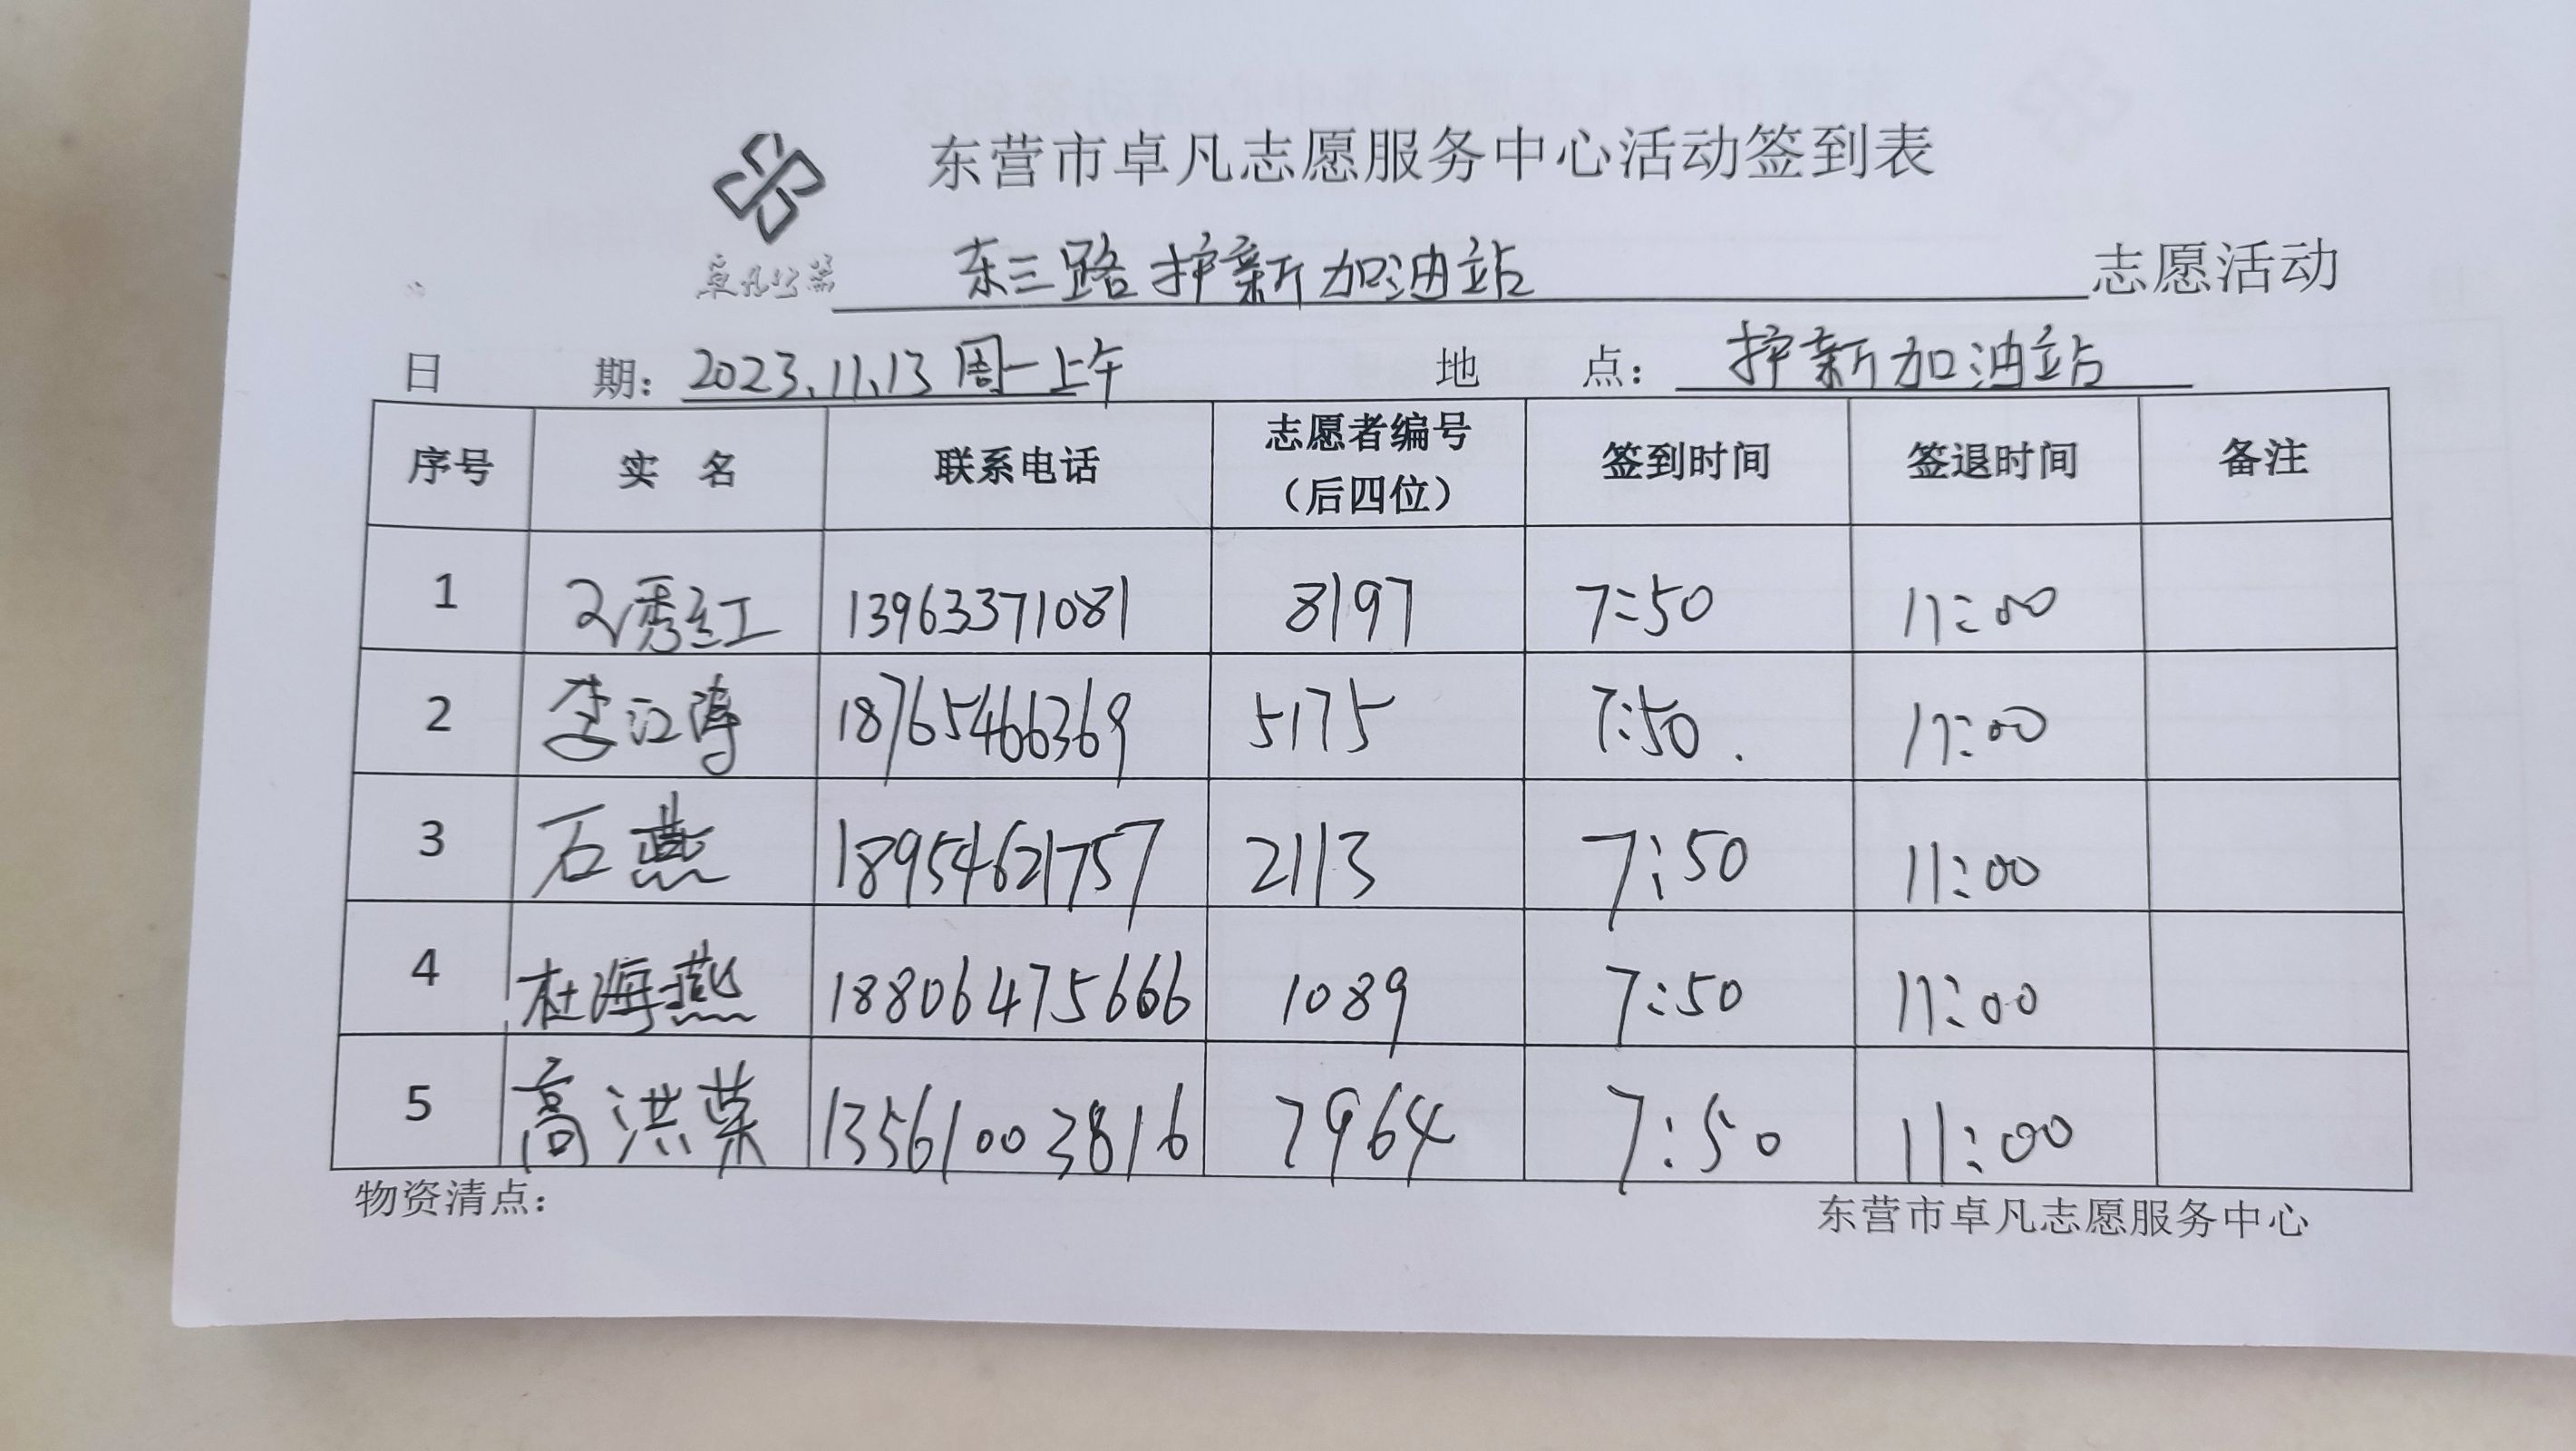 东营市卓凡志愿服务中心活动签到表
东三路护新加油站志愿活动
日期：2023.11.13 周一上午 地点：护新加油站
序号 实名 联系电话 志愿者编号（后四位） 签到时间 签退时间 备注
1 秀红 13963371081 8197 7:50 11:00
2 李江涛 18765466369 5175 7:50. 11:00
3 石燕 18954621757 2113 7:50 11:00
4 杜海燕 18806475666 1089 7:50 11:00
5 高洪菜 13561003816 7964 7:50 11:00
物资清点： 东营市卓凡志愿服务中心